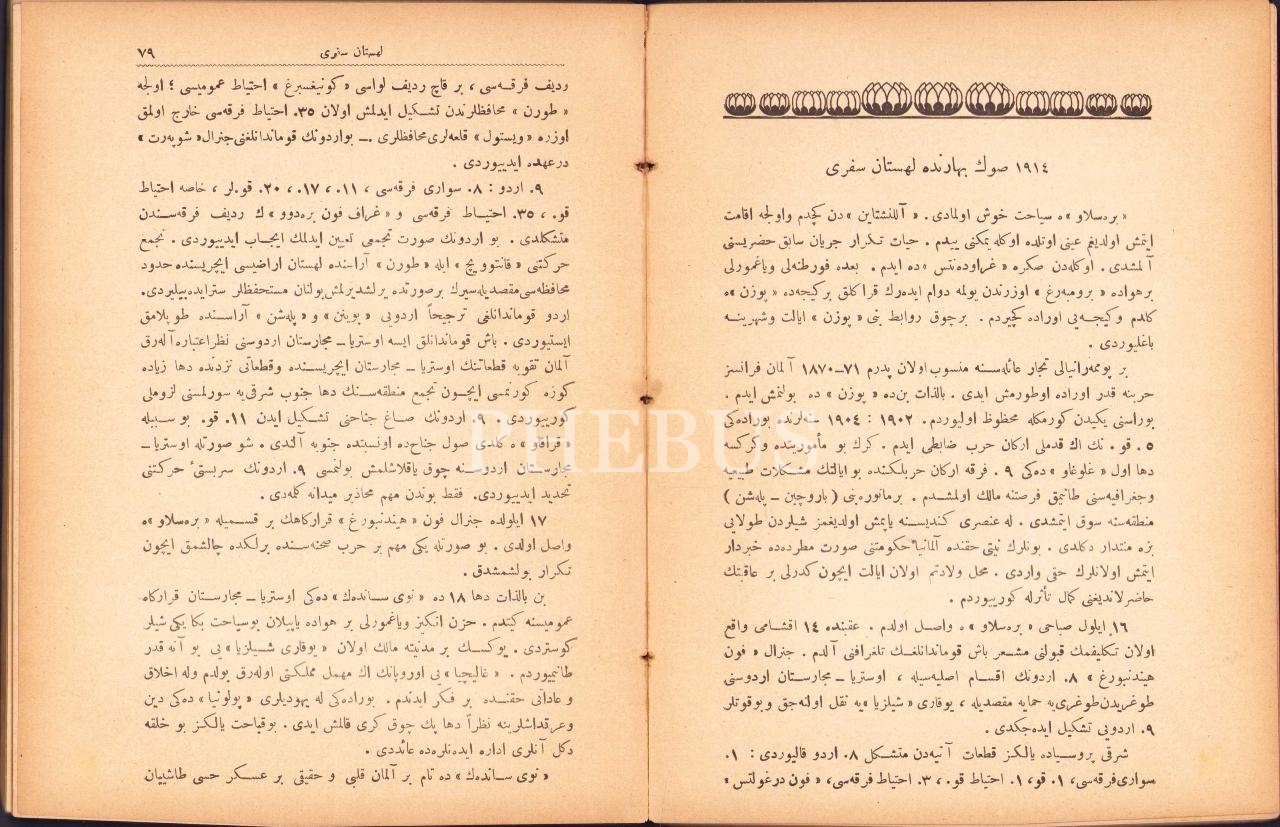 ١٩١٤ صوك بهارنده لهستان سفری
« بره‌سلاو »ه سیاحت خوش اولمادی . « آللنشتاین »دن کچدم واولجه اقامت
ایتمش اولدیغم عینی اوتلده اوکله یمکنی ییدم . حیات تکرار جریان سابق حضریسنی
آلمشدی . اوکله‌دن صکره « غراوده‌نتس »ده ایدم . بعده فورطنه‌لی ویاغمورلی
برهواده « برومبه‌رغ » اوزرندن یولمه دوام ایده‌رك قراکلق برکیجه‌ده « پوزن »ه
کلدم وکیجه‌یی اوراده کچیردم . برچوق روابط بنی « پوزن » ایالت وشهرینه
باغلیوردی .
بر پومه‌رانیالی تجار عائله‌سنه منسوب اولان پدرم ٧١ــ١٨٧٠ آلمان فرانسز
حربنه قدر اوراده اوطورمش ایدی . بالذات بن‌ده « پوزن » ده بولنمش ایدم .
بوراسنی یکیدن کورمکله محظوظ اولیوردم . ١٩٠٢ : ١٩٠٤ سنه‌لرنده بوراده‌کی
٥ . قو . نك اك قدملی ارکان حرب ضابطی ایدم . کرك بو مأموریتده وکرکسه
دها اول « غلوغاو » ده‌کی ٩ . فرقه ارکان حربلکنده بو ایالتك مشکلات طبیعیه
وجغرافیه‌سنی طانیمق فرصتنه مالك اولمشدم . برمانوره‌بنی ( یاروچین ــ پله‌شن )
منطقه‌سنه سوق ایتمشدی . له عنصری کندیسنه یاپمش اولدیغمز شیلردن طولایی
بزه منتدار دکلدی . بونلرك نیتی حقنده آلمانیا حکومتنی صورت مطرده‌ده خبردار
ایتمش اولانلرك حقی واردی . محل ولادتم اولان ایالت ایچون کدرلی بر عاقبتك
حاضرلاندیغنی کمال تأثرله کورییوردم .
١٦ ایلول صباحی « بره‌سلاو » ه واصل اولدم . عقبنده ١٤ اقشامی واقع
اولان تکلیفمك قبولنی مشعر باش قوماندانلغك تلغرافنی آلدم . جنرال « فون
هیندنبورغ » ٨. اردونك اقسام اصلیه‌سیله ، اوستریا ــ مجارستان اردوسنی
طوغریدن طوغری‌یه حمایه مقصدیله ، یوقاری « شیلزیا »یه نقل اولنه‌جق وبوقوتلر
٩. اردویی تشکیل ایده‌جکدی .
شرقی پروسیاده یالکز قطعات آتیه‌دن متشکل ٨. اردو قالیوردی : ١.
سواری فرقه‌سی، ١. قو، ١. احتیاط قو. ، ٣. احتیاط فرقه‌سی، « فون درغولتس »
٧٩ لهستان سفری
ردیف فرقه‌سی ، بر قاچ ردیف لواسی « کونیغسبرغ » احتیاط عمومیسی ؛ اولجه
« طورن » محافظلرندن تشکیل ایدلمش اولان ٣٥. احتیاط فرقه‌سی خارج اولمق
اوزره « ویستول » قلعه‌لری محافظلری .ــ بو اردونك قوماندانلغنی جنرال« شوبه‌رت »
درعهده ایدییوردی .
٩. اردو : ٨. سواری فرقه‌سی ، ١١. ، ١٧. ، ٢٠. قو.لر ، خاصه احتیاط
قو. ، ٣٥. احتیاط فرقه‌سی و « غراف فون بره‌دوو » ك ردیف فرقه‌سندن
متشکلدی . بو اردونك صورت تجمعی تعیین ایدلمك ایجاب ایدییوردی . تجمع
حرکتنی « قاتتوویچ » ایله « طورن » آراسنده لهستان اراضیسی ایچریسنده حدود
محافظه‌سی مقصدیله سیرك برصورتده یرلشدیرلمش بولنان مستحفظلر سترایده‌بیلیردی.
اردو قوماندانلغی ترجیحاً اردویی « بویتن » و « پله‌شن » آراسنده طوپلامق
ایستیوردی . باش قوماندانلق ایسه اوستریا ــ مجارستان اردوسنی نظر اعتباره آله‌رق
آلمان تقویه قطعاتنك اوستریا ــ مجارستان ایچریسنده وقطعاتی نزدنده دها زیاده
کوزه کورنمسی ایچون تجمع منطقه‌سنك دها جنوب شرقی‌یه سورلمسنی لزوملی
کورییوردی . ٩. اردونك صاغ جناحنی تشکیل ایدن ١١. قو. بو سبیله
« قراقاو » ه کلدی صول جناح‌ده اونسبتده جنوبه آلندی . شو صورتله اوستریا ــ
مجارستان اردوسنه چوق یاقلاشلمش بولنمسی ٩. اردونك سربستئ حرکتنی
تحدید ایدییوردی. فقط بوندن مهم محاذیر میدانه کلمه‌دی .
١٧ ایلولده جنرال فون « هیندنبورغ » قرارکاهك بر قسمیله « بره‌سلاو »ه
واصل اولدی . بو صورتله یکی مهم بر حرب صحنه‌سنده برلکده چالشمق ایچون
تکرار بولشمشدق .
بن بالذات دها ١٨ ده « نوی ساندەك » ده‌کی اوستریا ــ مجارستان قرارکاه
عمومیسنه کیتدم . حزن انکیز ویاغمورلی بر هواده یاپیلان بوسیاحت بکا یکی شیلر
کوستردی . یوکسك بر مدنیته مالك اولان « یوقاری شیلزیا » یی بو آنه قدر
طانیمیوردم . « غالیچیا » یی اوروپانك اك مهمل مملکتی اوله‌رق بولدم وله اخلاق
و عاداتی حقنده بر فکر ایدندم . بوراده‌کی له یهودیلری « پولونیا » ده‌کی دین
وعرقداشلرینه نظراً دها پك چوق کری قالمش ایدی . بوقباحت یالکز بو خلقه
دکل آنلری اداره ایده‌نلره‌ده عائددی .
« نوی ساندەك » ده تام بر آلمان قلبی و حقیقی بر عسکر حسی طاشییان
PHEBUS